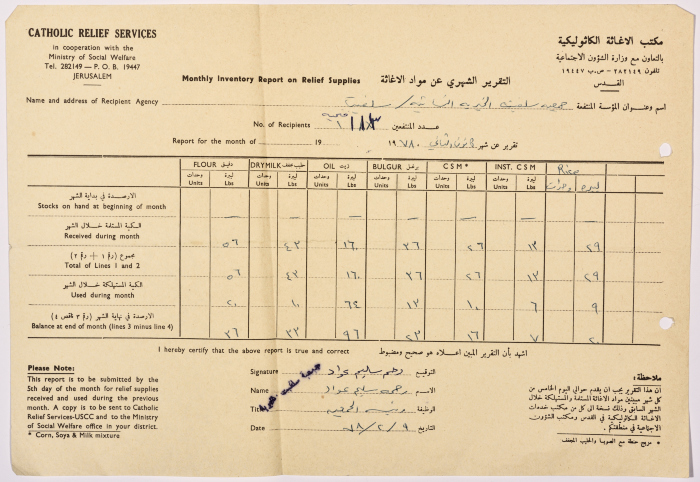 CATHOLIC RELIEF SERVICES
in cooperation with the
Ministry of Social Welfare
Tel. 282149 — P. O. B. 19447
JERUSALEM
مكتب الاغاثة الكاثوليكية
بالتعاون مع وزارة الشؤون الاجتماعية
تلفون ٢٨٢١٤٩ - ص.ب ١٩٤٤٧
القدس
Monthly Inventory Report on Relief Supplies التقرير الشهري عن مواد الاغاثة
Name and address of Recipient Agency جمعية سلفيت الخيرية / سلفيت اسم وعنوان المؤسسة المنتفعة
No. of Recipients عدد المنتفعين
Report for the month of 19 ١٩٧٨ تقرير عن شهر
FLOUR دقيق DRYMILK حليب مجفف OIL زيت BULGUR برغل CSM* INST. CSM Rice
وحدات Units ليبرة Lbs وحدات Units ليبرة Lbs وحدات Units ليبرة Lbs وحدات Units ليبرة Lbs وحدات Units ليبرة Lbs وحدات Units ليبرة Lbs وحدات ليبرة
الارصدة في بداية الشهر
Stocks on hand at beginning of month — — — — — — —
الكمية المستلمة خلال الشهر
Received during month ٥٦ ٤٣ ١٦٠ ٣٦ ٢٦ ١٣ ٢٩
مجموع (رقم ١ + رقم ٢)
Total of Lines 1 and 2 ٥٦ ٤٣ ١٦٠ ٣٦ ٢٦ ١٣ ٢٩
الكمية المستهلكة خلال الشهر
Used during month ٢٠ ١٠ ٦٤ ١٣ ١٠ ٦ ٩
الارصدة في نهاية الشهر (رقم ٣ ناقص ٤)
Balance at end of month (lines 3 minus line 4) ٣٦ ٣٣ ٩٦ ٢٣ ١٦ ٧ ٢٠
I hereby certify that the above report is true and correct اشهد بأن التقرير المبين اعلاه هو صحيح ومضبوط
Signature سليم عواد التوقيع
Name سليم عواد الاسم
Title الوظيفة
Date ٧٨/٢/٩ التاريخ
Please Note:
This report is to be submitted by the
5th day of the month for relief supplies
received and used during the previous
month. A copy is to be sent to Catholic
Relief Services-USCC and to the Ministry
of Social Welfare office in your district.
* Corn, Soya & Milk mixture
ملاحظة:
ان هذا التقرير يجب ان يقدم حوالي اليوم الخامس من
كل شهر مبينين مواد الاغاثة المستلمة والمستهلكة خلال
الشهر السابق وذلك نسخة الى كل من مكتب خدمات
الاغاثة الكاثوليكية في القدس ومكتب الشؤون
الاجتماعية في منطقتكم.
* مزيج حنطة مع الصويا والحليب المجفف